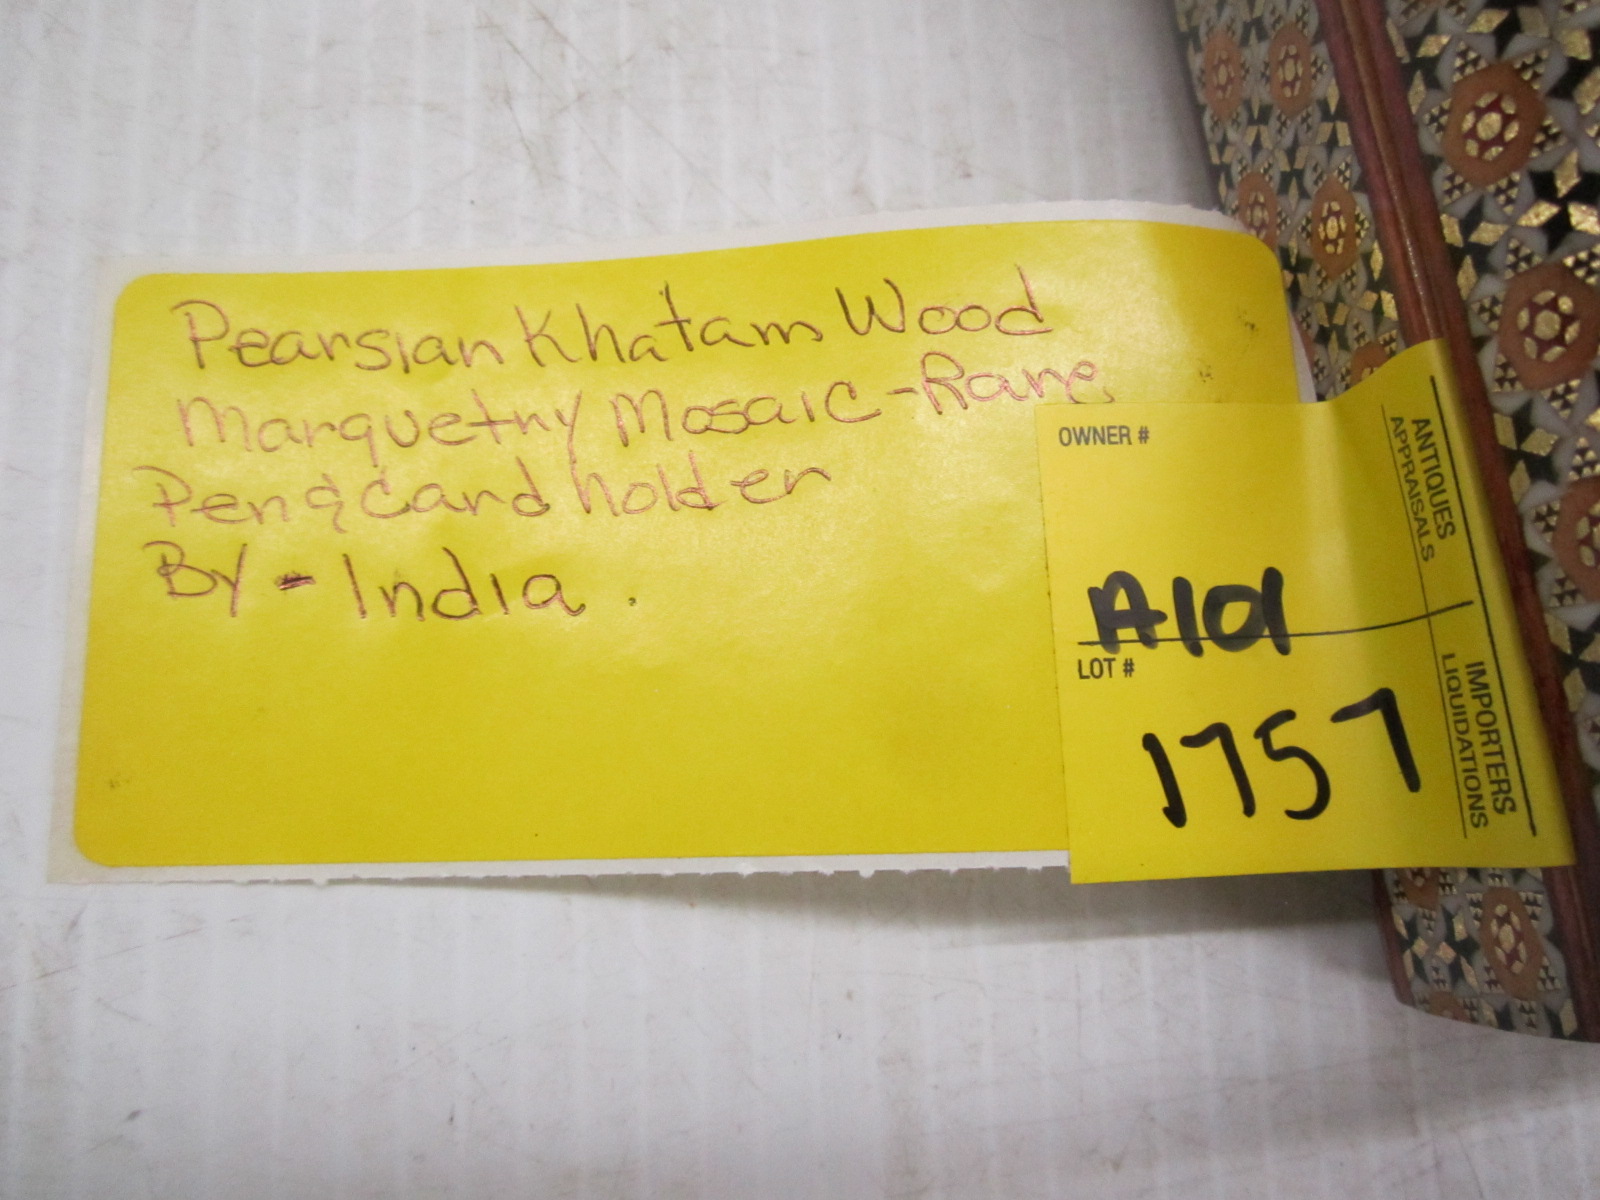 Pearsian Khatam Wood
Marquetry Mosaic - Rare
Pen & Card holder
By - India.
OWNER #
A101
LOT #
1757
ANTIQUES
APPRAISALS
IMPORTERS
LIQUIDATIONS